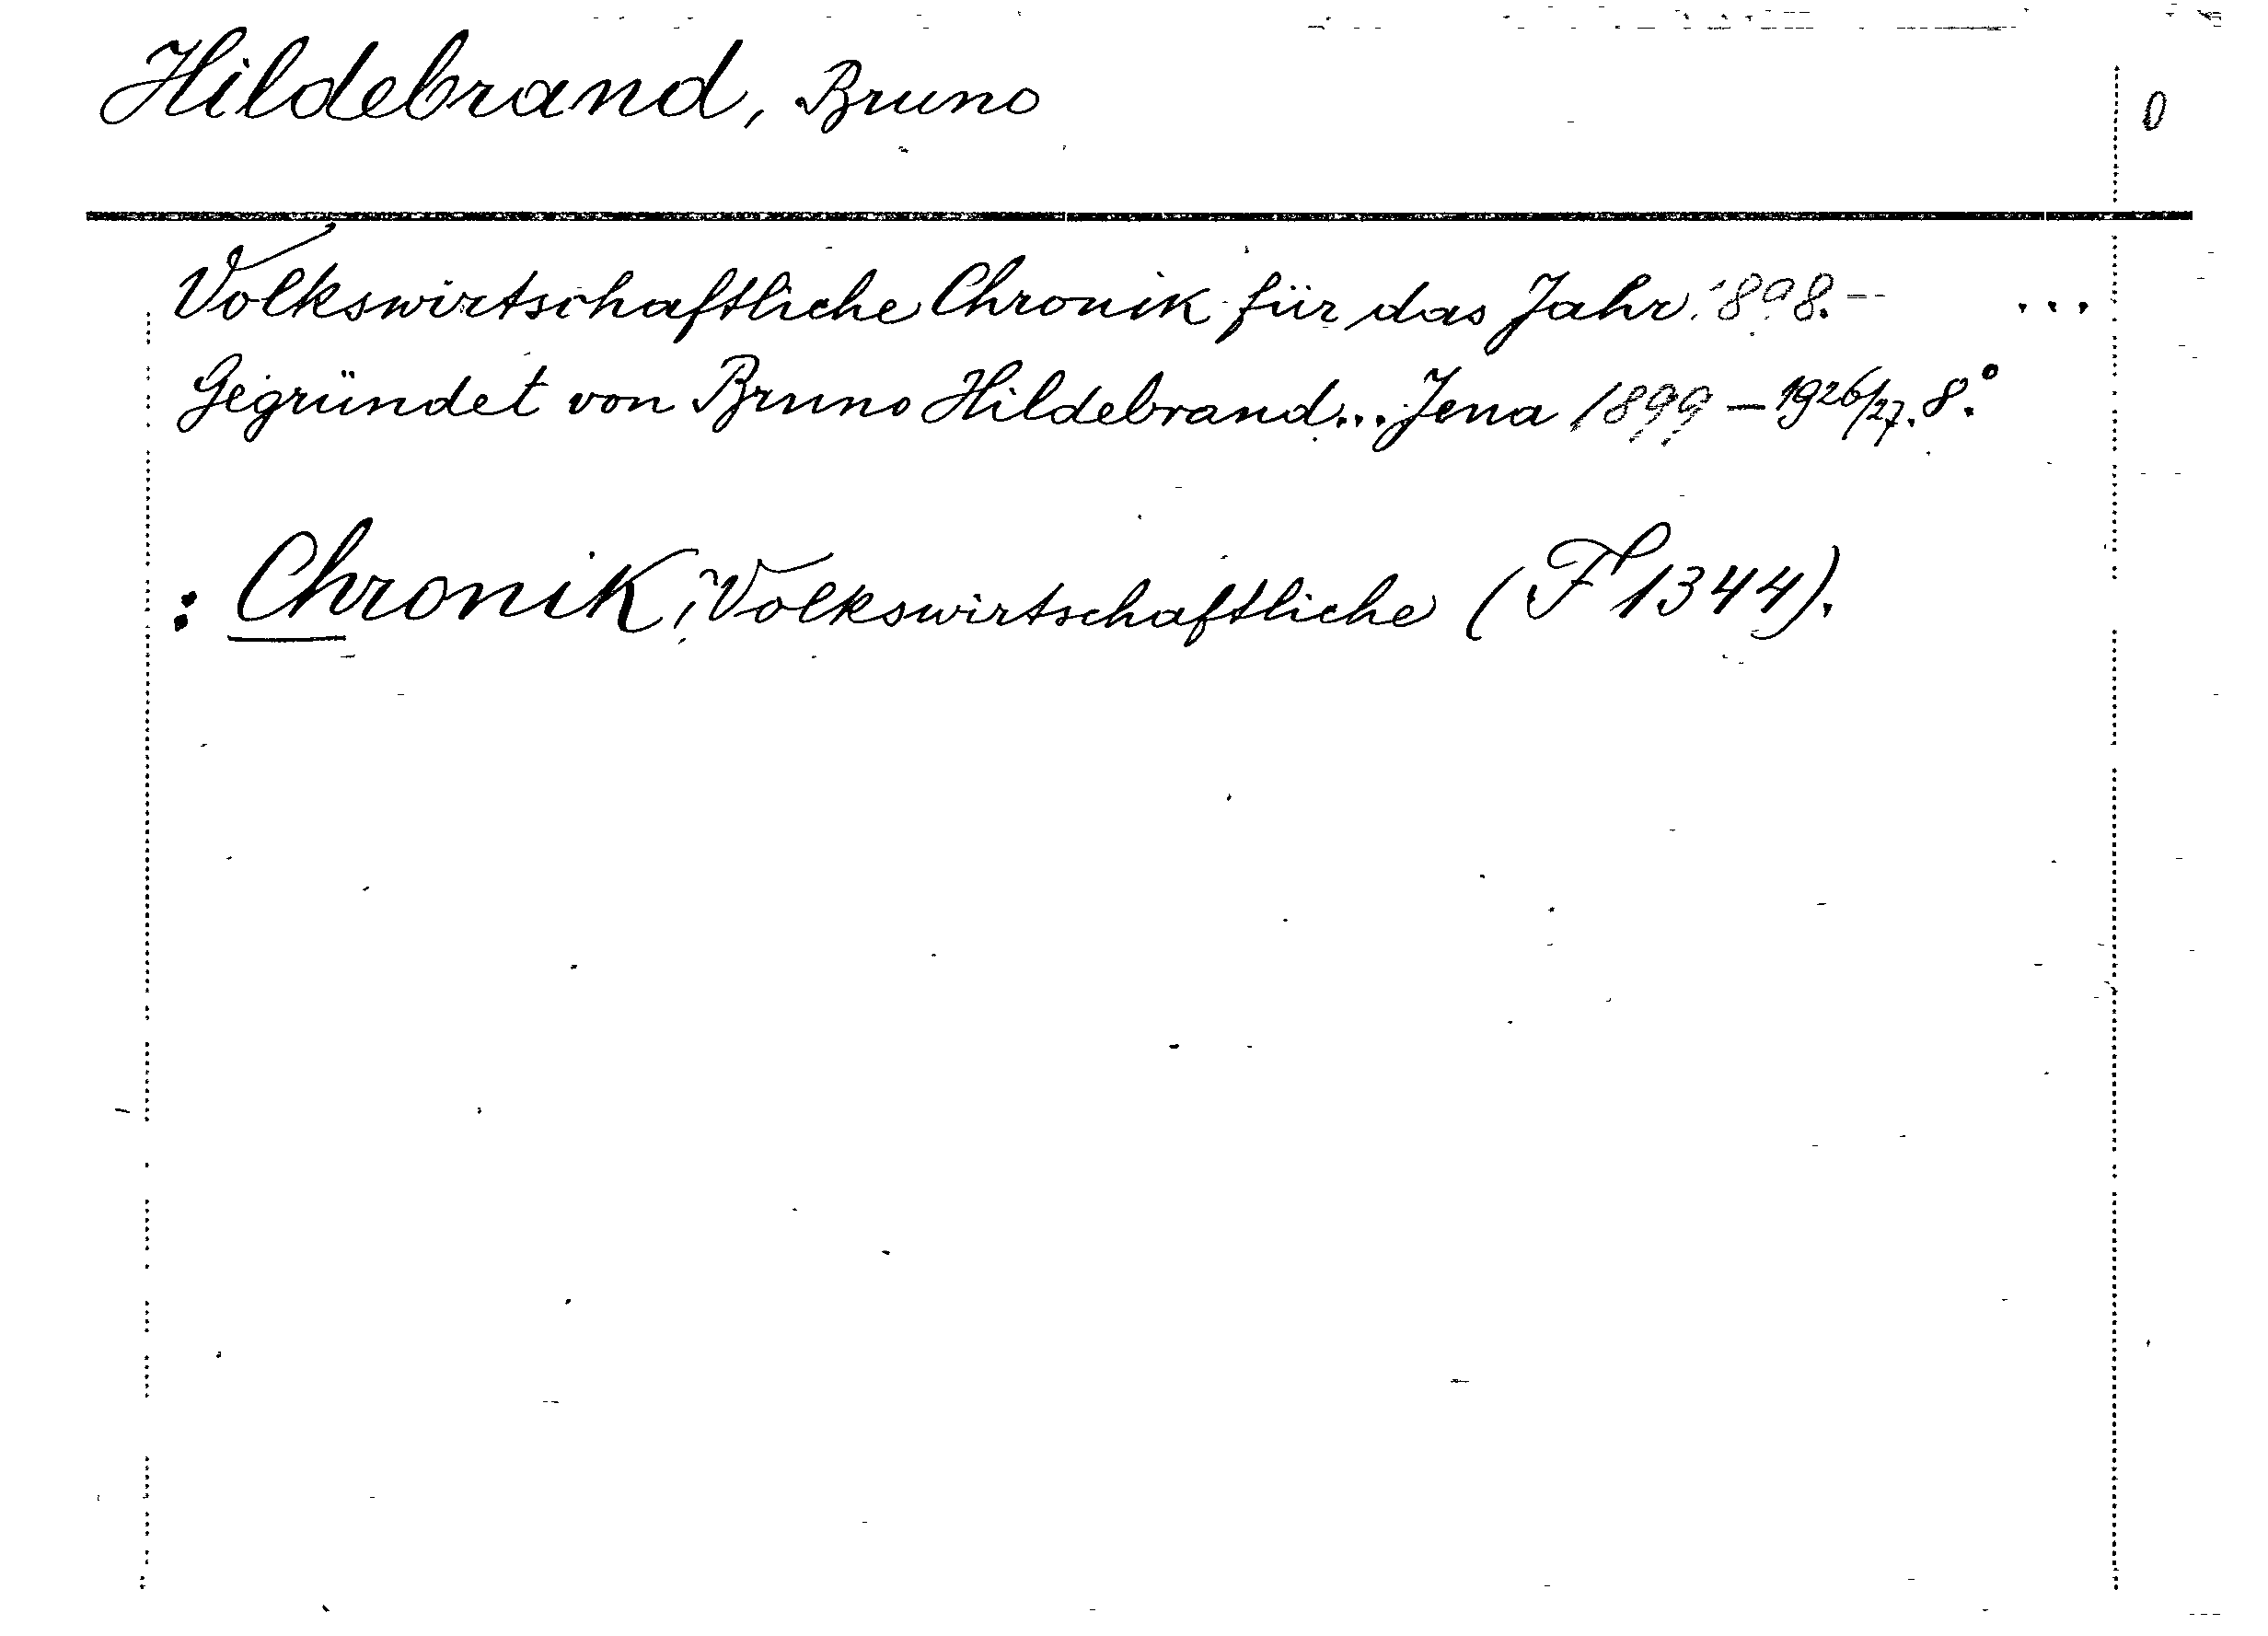 Hildebrand, Bruno 0
Volkswirtschaftliche Chronik für das Jahr 1898.-- ...
Gegründet von Bruno Hildebrand... Jena 1899 – 1926/27. 8.°
: Chronik, Volkswirtschaftliche (F 1344).